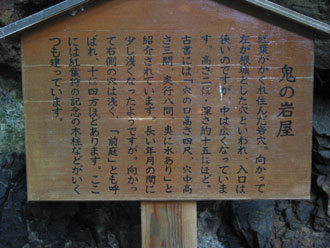 鬼の岩屋
紅葉がかくれ住んだ岩穴。向かって
左が根城とした穴といわれ、入口は
狭いのですが、中は広くなっていま
す。高さ二㍍・深さ約十五㍍ほど。
古書には「穴の口高さ四尺、穴中高
さ三間、奥行八間、奥に水あり」と
紹介されています。長い年月の間に
少し浅くなったようですが、向かっ
て右側の穴は浅く、「前庭」とも呼
ばれ、十㍍四方ほどあります。ここ
には紅葉狩の記念の木柱などがいく
つも建っています。